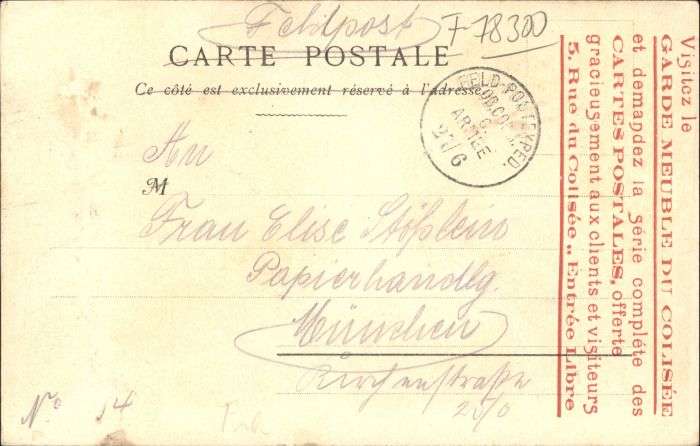 Feldpost
F-78300
CARTE POSTALE
Ce côté est exclusivement réservé à l'Adresse
FELD-POSTEXPED.
ARMEE
An
M
Frau Elise Stößlein
Papierhandlg.
München
Kirchenstraße
No 14
Visitez le
GARDE MEUBLE DU COLISÉE
et demandez la série complète des
CARTES POSTALES, offerte
gracieusement aux clients et visiteurs
5, Rue du Colisée,, Entrée Libre